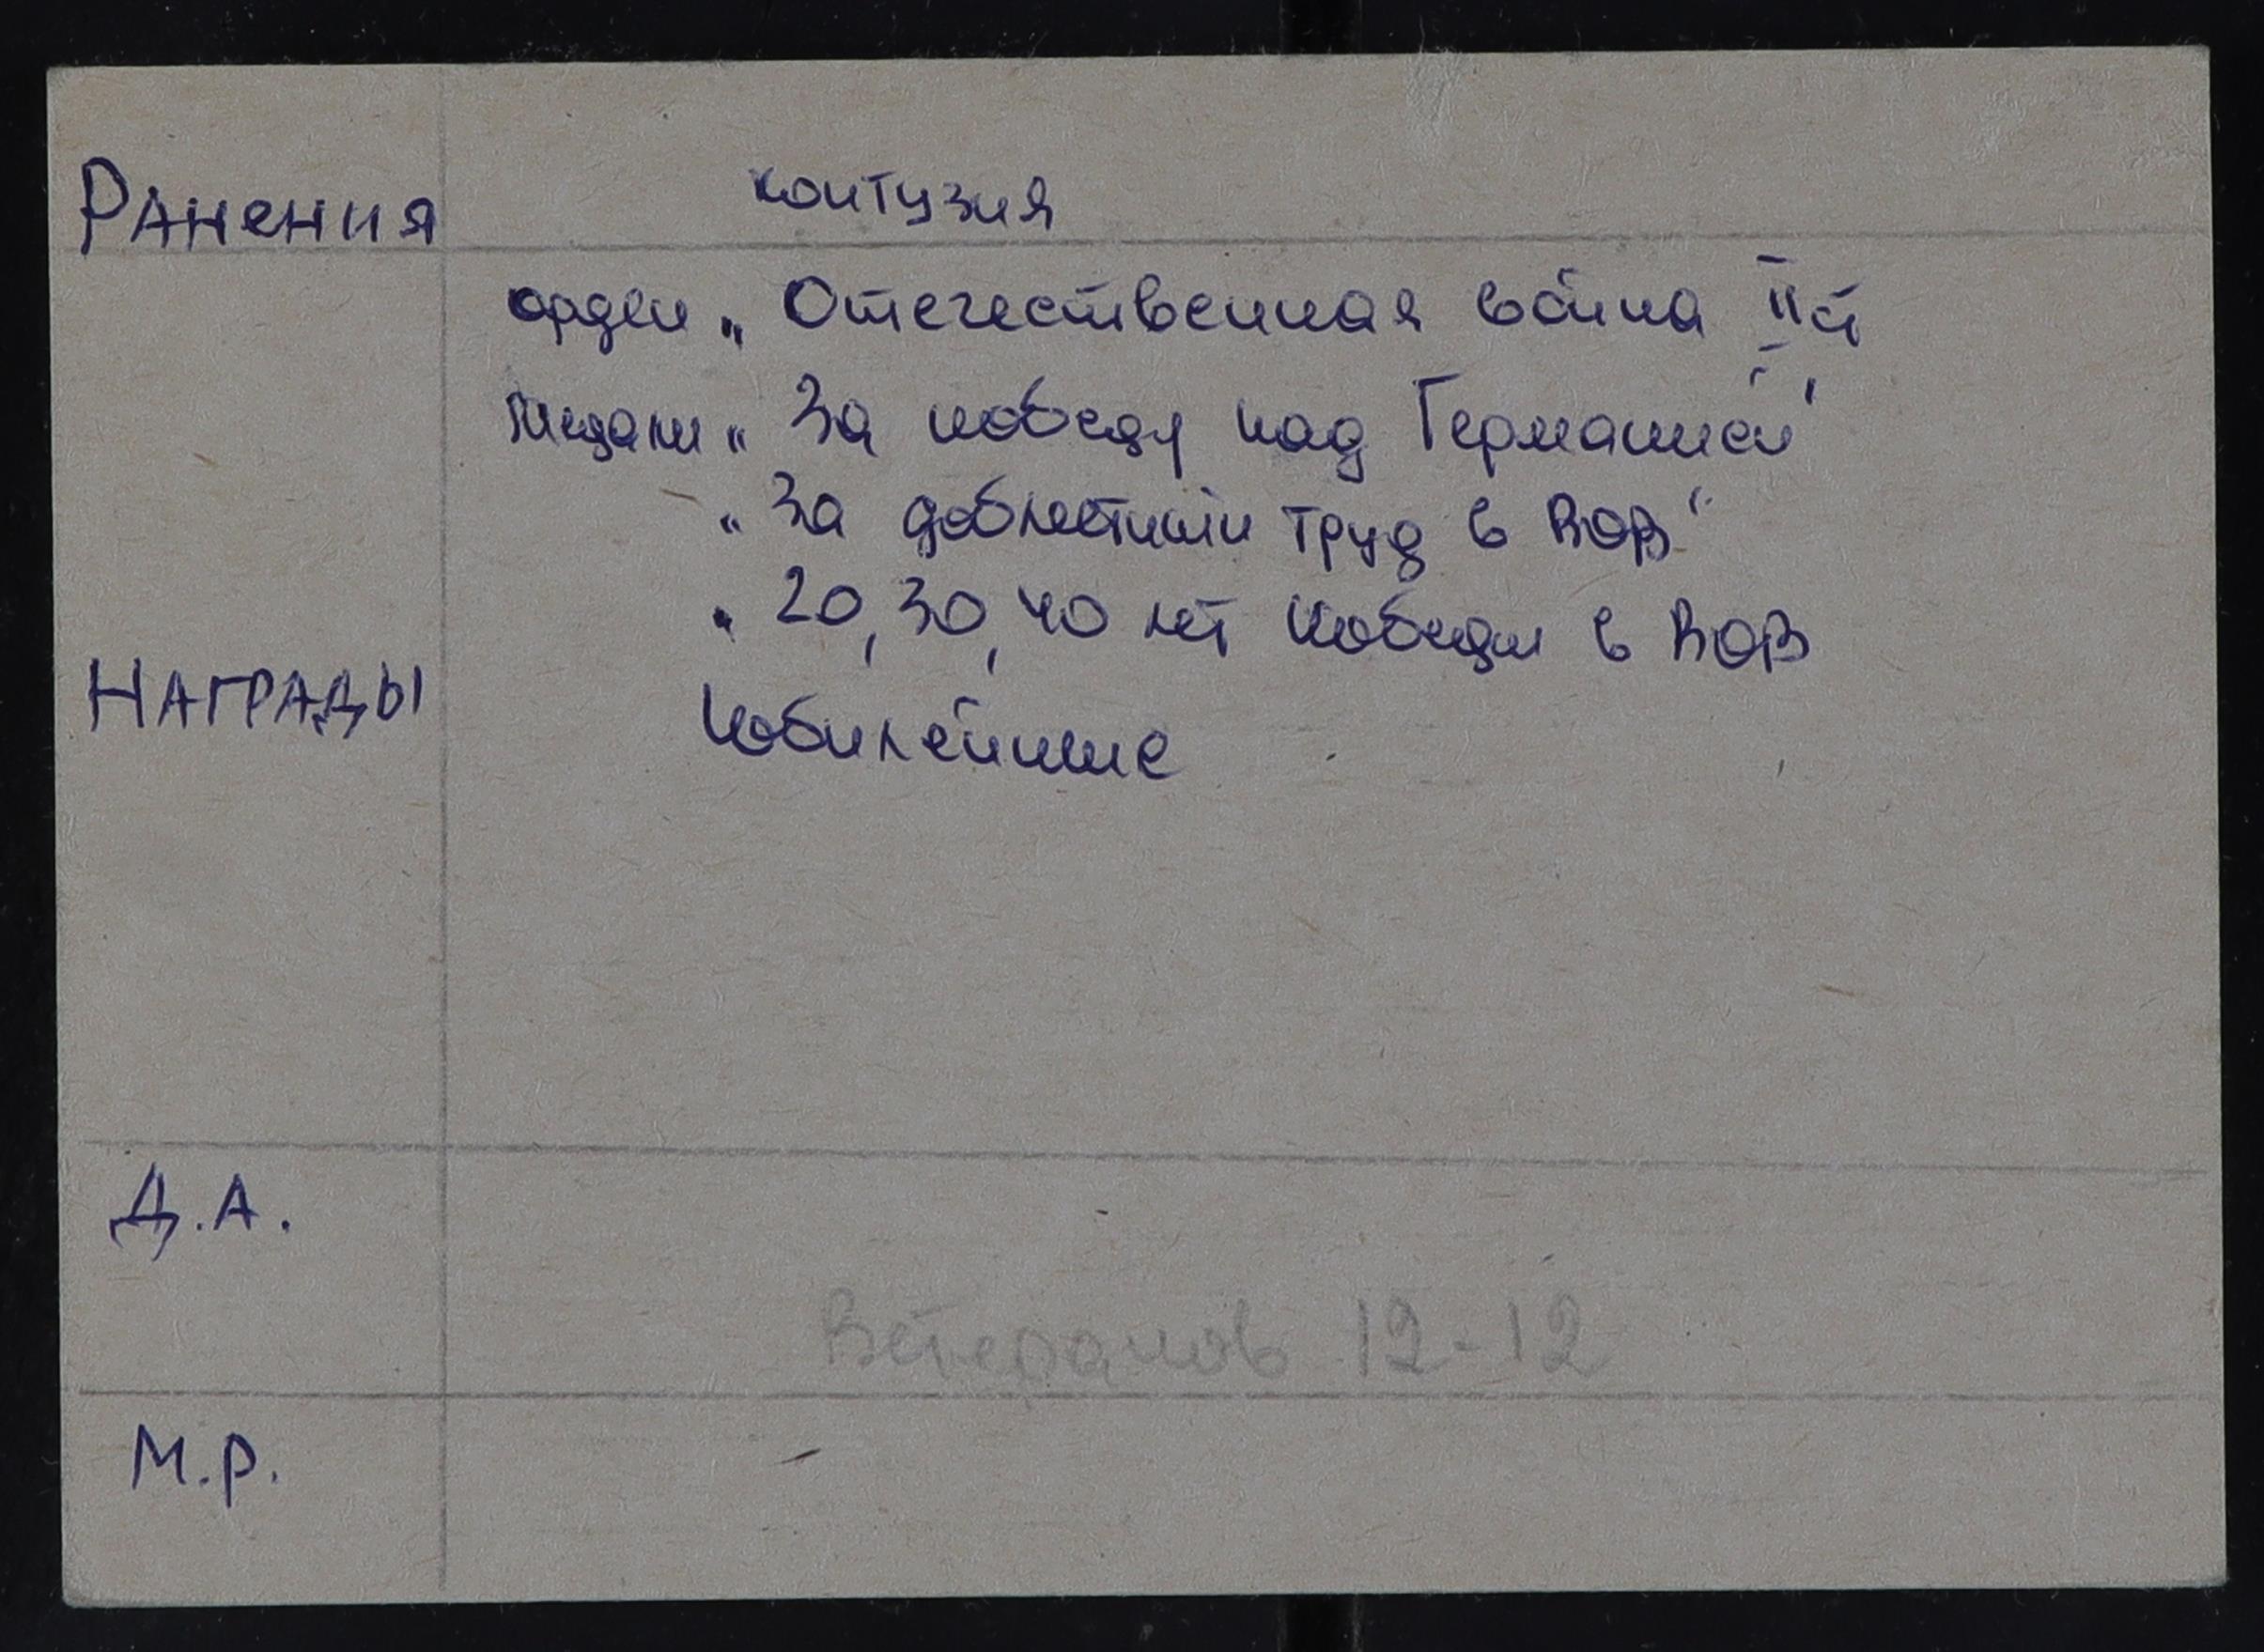 Ранения контузия
орден „Отечественная война II ст
медали „За победу над Германией"
„За доблестный труд в ВОВ"
„20, 30, 40 лет победы в ВОВ
Награды
Юбилейные
Д.А.
Ветеранов 12-12
М.Р.